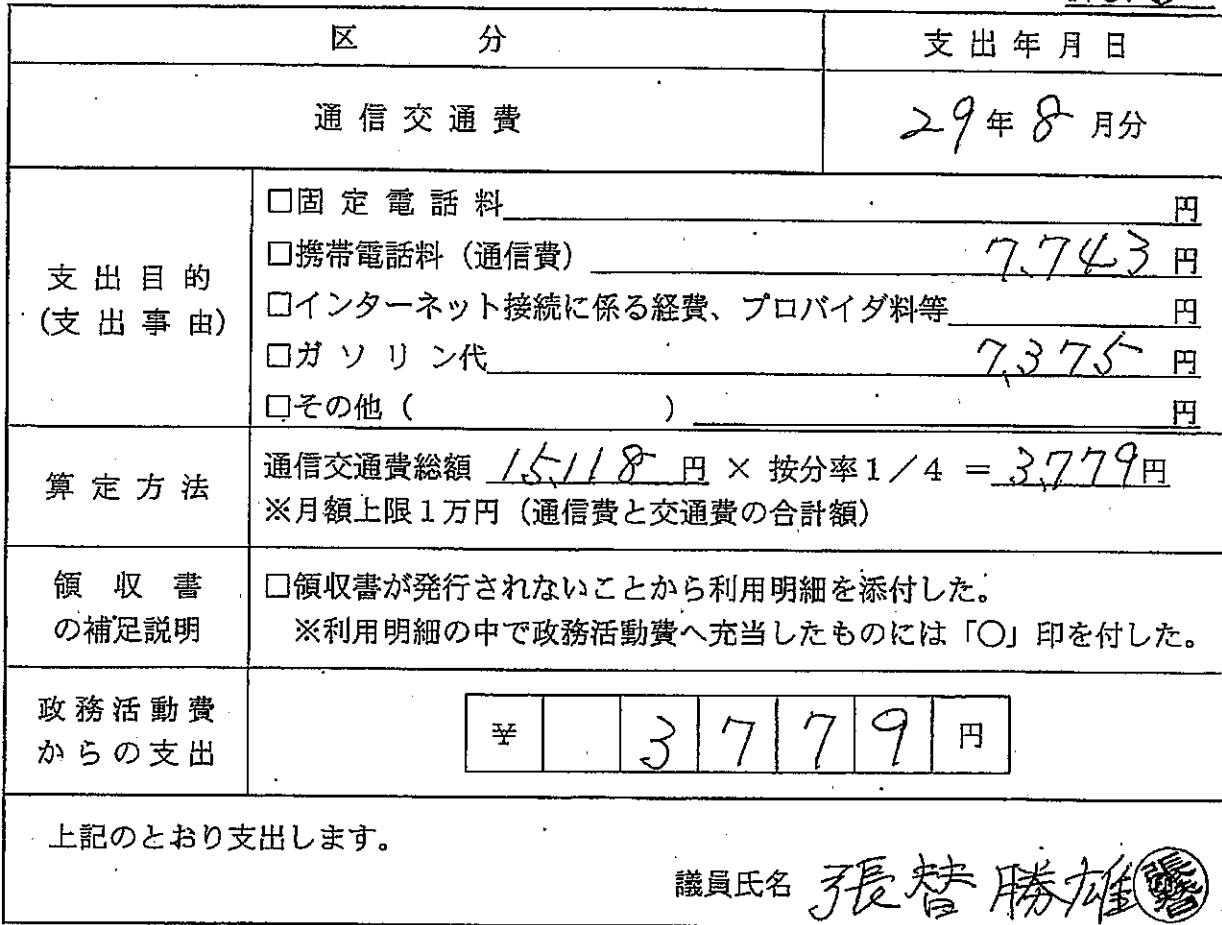 区分 支出年月日
通信交通費 29年8月分
支出目的
(支出事由)
□固定電話料 円
□携帯電話料(通信費) 7,743円
□インターネット接続に係る経費、プロバイダ料等 円
□ガソリン代 7,375円
□その他( ) 円
算定方法
通信交通費総額 15,118円 × 按分率1/4 = 3,779円
※月額上限1万円(通信費と交通費の合計額)
領収書
の補足説明
□領収書が発行されないことから利用明細を添付した。
※利用明細の中で政務活動費へ充当したものには「〇」印を付した。
政務活動費
からの支出
¥ 3779円
上記のとおり支出します。
議員氏名 張替勝雄 張替